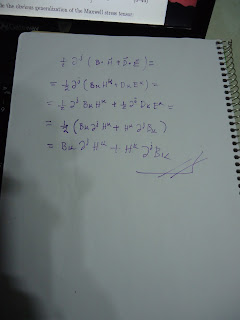 is the obvious generalization of the Maxwell stress tensor:
½ ∂ʲ (B·H + D·E) =
= ½ ∂ʲ (BₖHᵏ + DₖEᵏ) =
= ½ ∂ʲ BₖHᵏ + ½ ∂ʲ DₖEᵏ =
= ½ (Bₖ ∂ʲ Hᵏ + Hᵏ ∂ʲ Bₖ)
= Bₖ ∂ʲ Hᵏ + Hᵏ ∂ʲ Bₖ